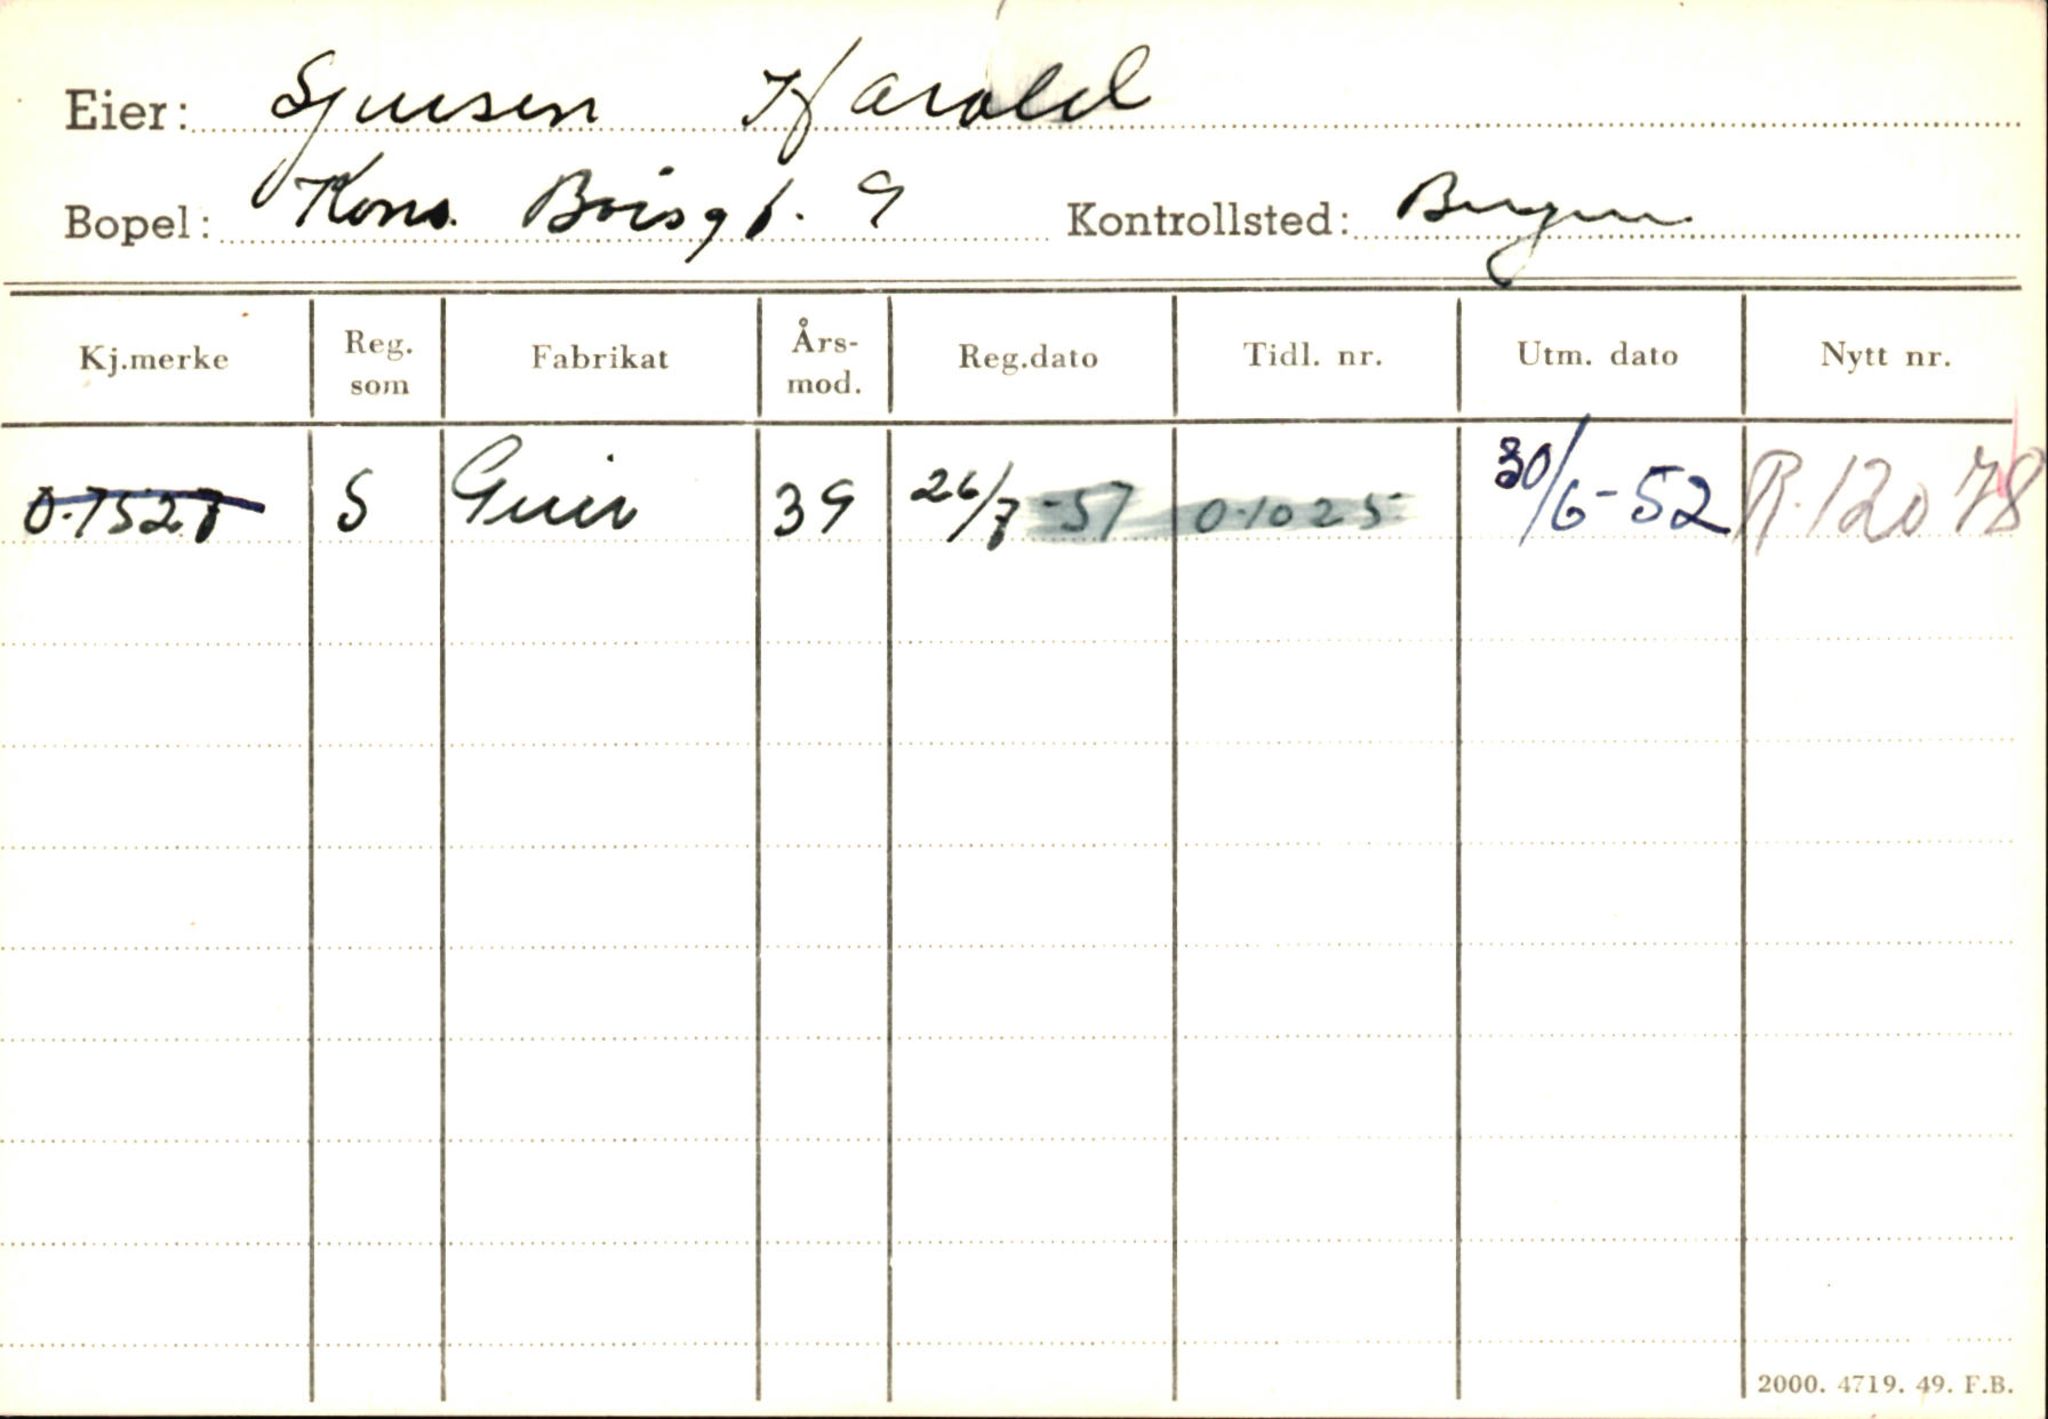 Eier: Sjursen Harald
Bopel: Kons. Børsgt. 9 Kontrollsted: Bergen
Kj.merke Reg. som Fabrikat Års-mod. Reg.dato Tidl. nr. Utm. dato Nytt nr.
O-7527 S 39 26/7-51 O-1025 30/6-52 R-12078
2000. 4719. 49. F.B.